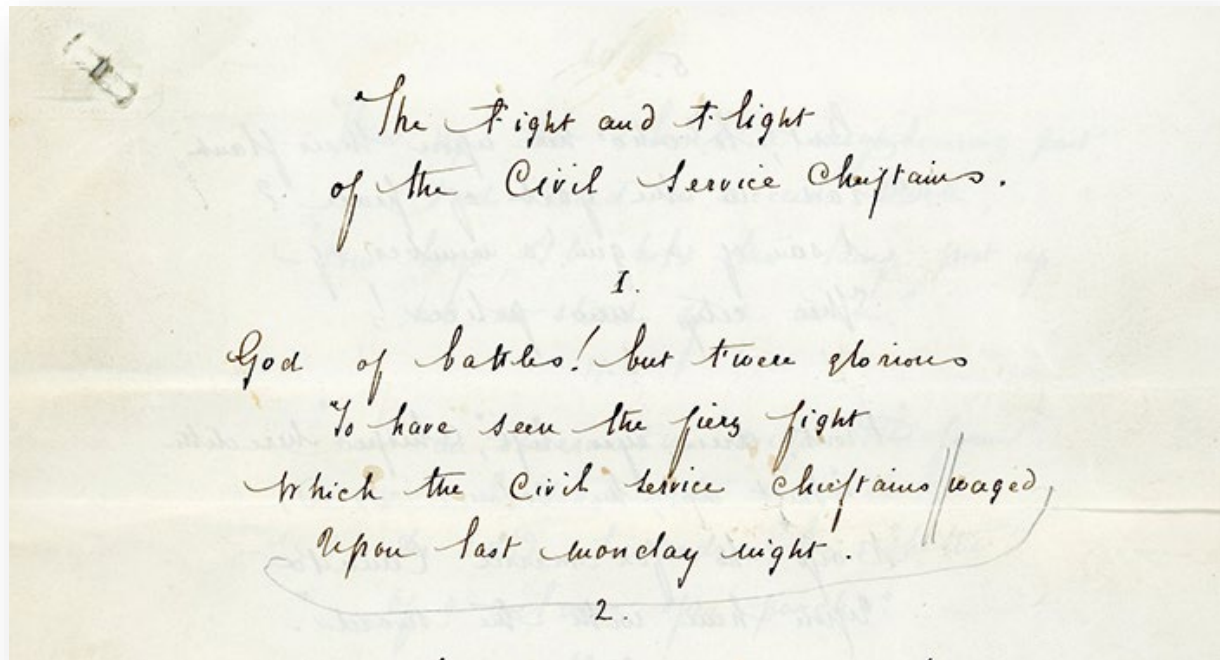 The Fight and Flight
of the Civil Service Chieftains.
I.
God of battles! but t'were glorious
To have seen the fiery fight
Which the Civil Service Chieftains waged,
Upon last Monday night.
2.